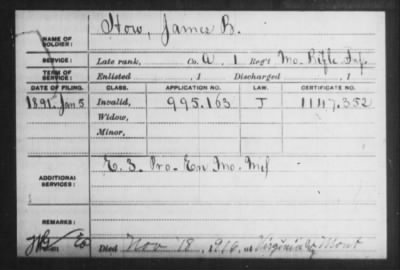 NAME OF SOLDIER: How, James B.
SERVICE: Late rank, Co. A, 1 Reg't Mo. Rifle Inf.
TERM OF SERVICE: Enlisted , 1 Discharged , 1
DATE OF FILING. CLASS. APPLICATION NO. LAW. CERTIFICATE NO.
1891 Jan 5 Invalid, 995.163 J 1147.352
Widow,
Minor,
ADDITIONAL SERVICES: E. 3. Pro. En. Mo. Mil
REMARKS:
Died Nov 18, 1916, at Virginia City Mont